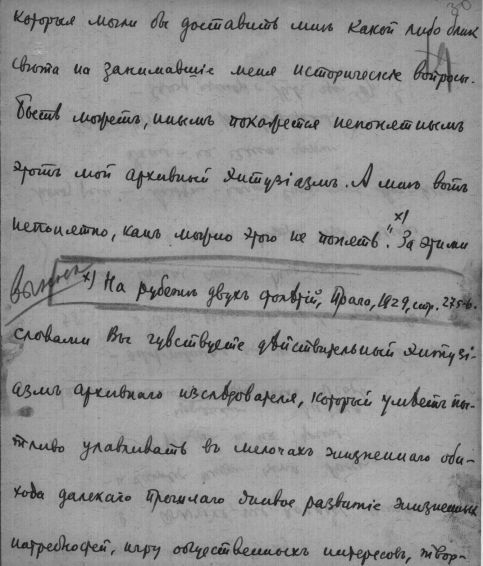 которыя могли бы доставить мнѣ какой либо блик
свѣта на занимавшіе меня историческіе вопросы.
Быть можетъ, инымъ покажется непонятнымъ
этотъ мой архивный энтузіазмъ. А мнѣ вотъ
непонятно, какъ можно этого не понять". x) За этими
x) На рубежѣ двухъ столѣтій, Прага, 1929, стр. 275-6.
словами Вы чувствуете дѣйствительный энтузі-
азмъ архивнаго изслѣдователя, который умѣетъ пы-
тливо улавливать въ мелочахъ жизненнаго оби-
хода далекаго прошлаго живое развитіе жизненныхъ
потребностей, игру общественныхъ интересовъ, твор-